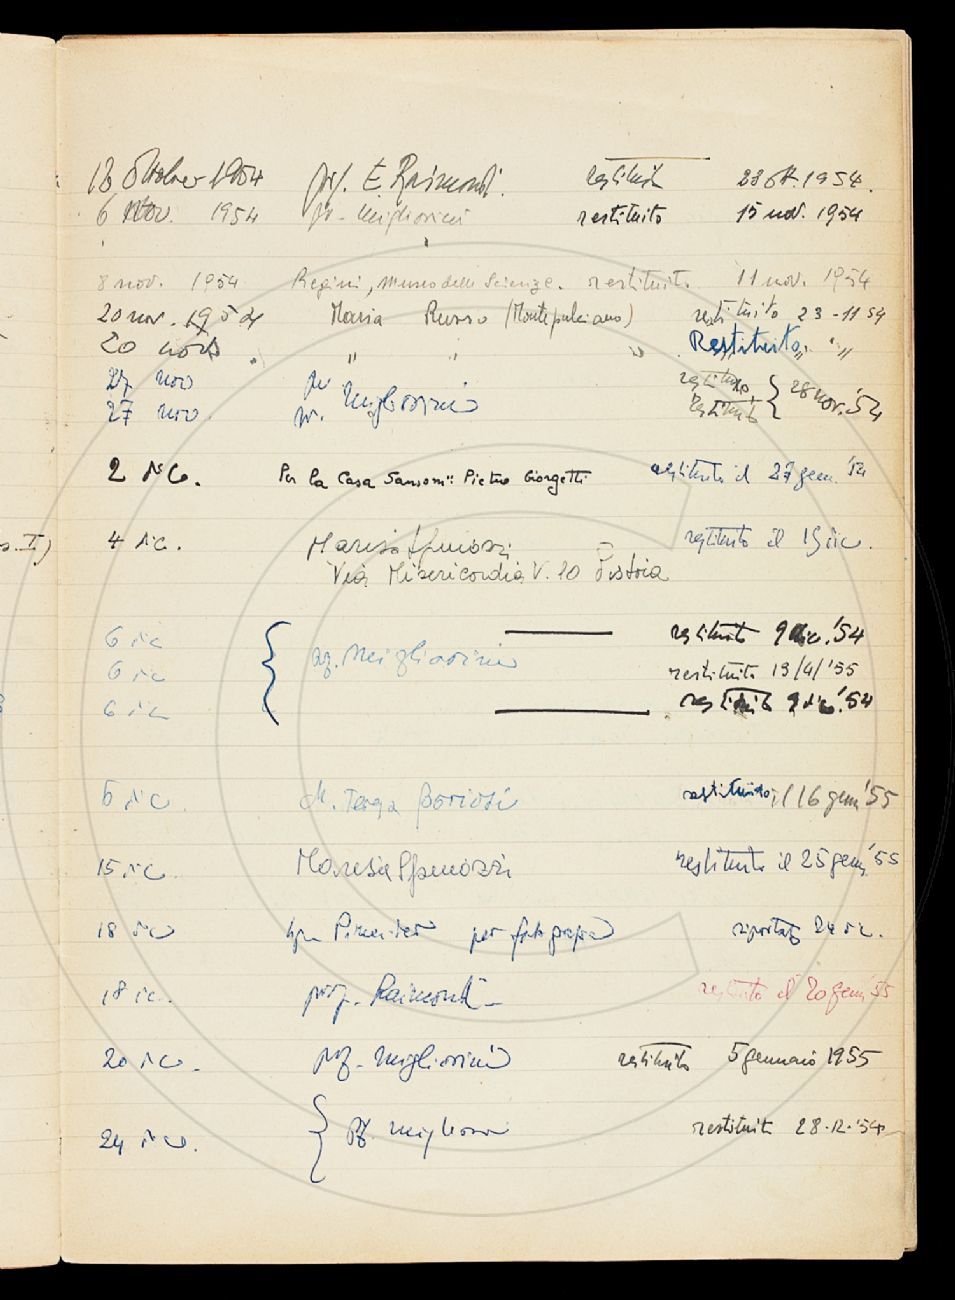 s. II)
18 Oktober 1954 prof. E. Raimondi restituito 28 Ott. 1954.
6 Nov. 1954 pr. Migliorini restituito 15 nov. 1954
8 nov. 1954 Regini, Museo delle Scienze. restituito 11 nov. 1954
20 nov. 1954 Maria Russo (Montepulciano) restituito 23-11 54
20 nov " " " " Restituito " "
27 nov pr restituito
27 nov. pr. Migliorini restituito } 28 nov. '54
2 dic. Per la Casa Sansoni: Pietro Giorgetti restituito il 27 gen.
4 dic. Marisa restituito il 15 dic.
Via Misericordia V. 10 Pistoia
6 dic restituito 9 dic. '54
6 dic { Migliorini restituito 13/4/'55
6 dic restituito 9 dic. '54
6 dic. M. Teresa restituito il 16 gen. '55
15 dic. Marisa restituito il 25 gen. '55
18 dic per fotografia riportato 24 dic.
18 dic. prof. Raimondi – restituito il 20 gen. '55
20 dic. prof. Migliorini restituito 5 gennaio 1955
24 dic. { pr. Migliorini restituito 28.12.'54